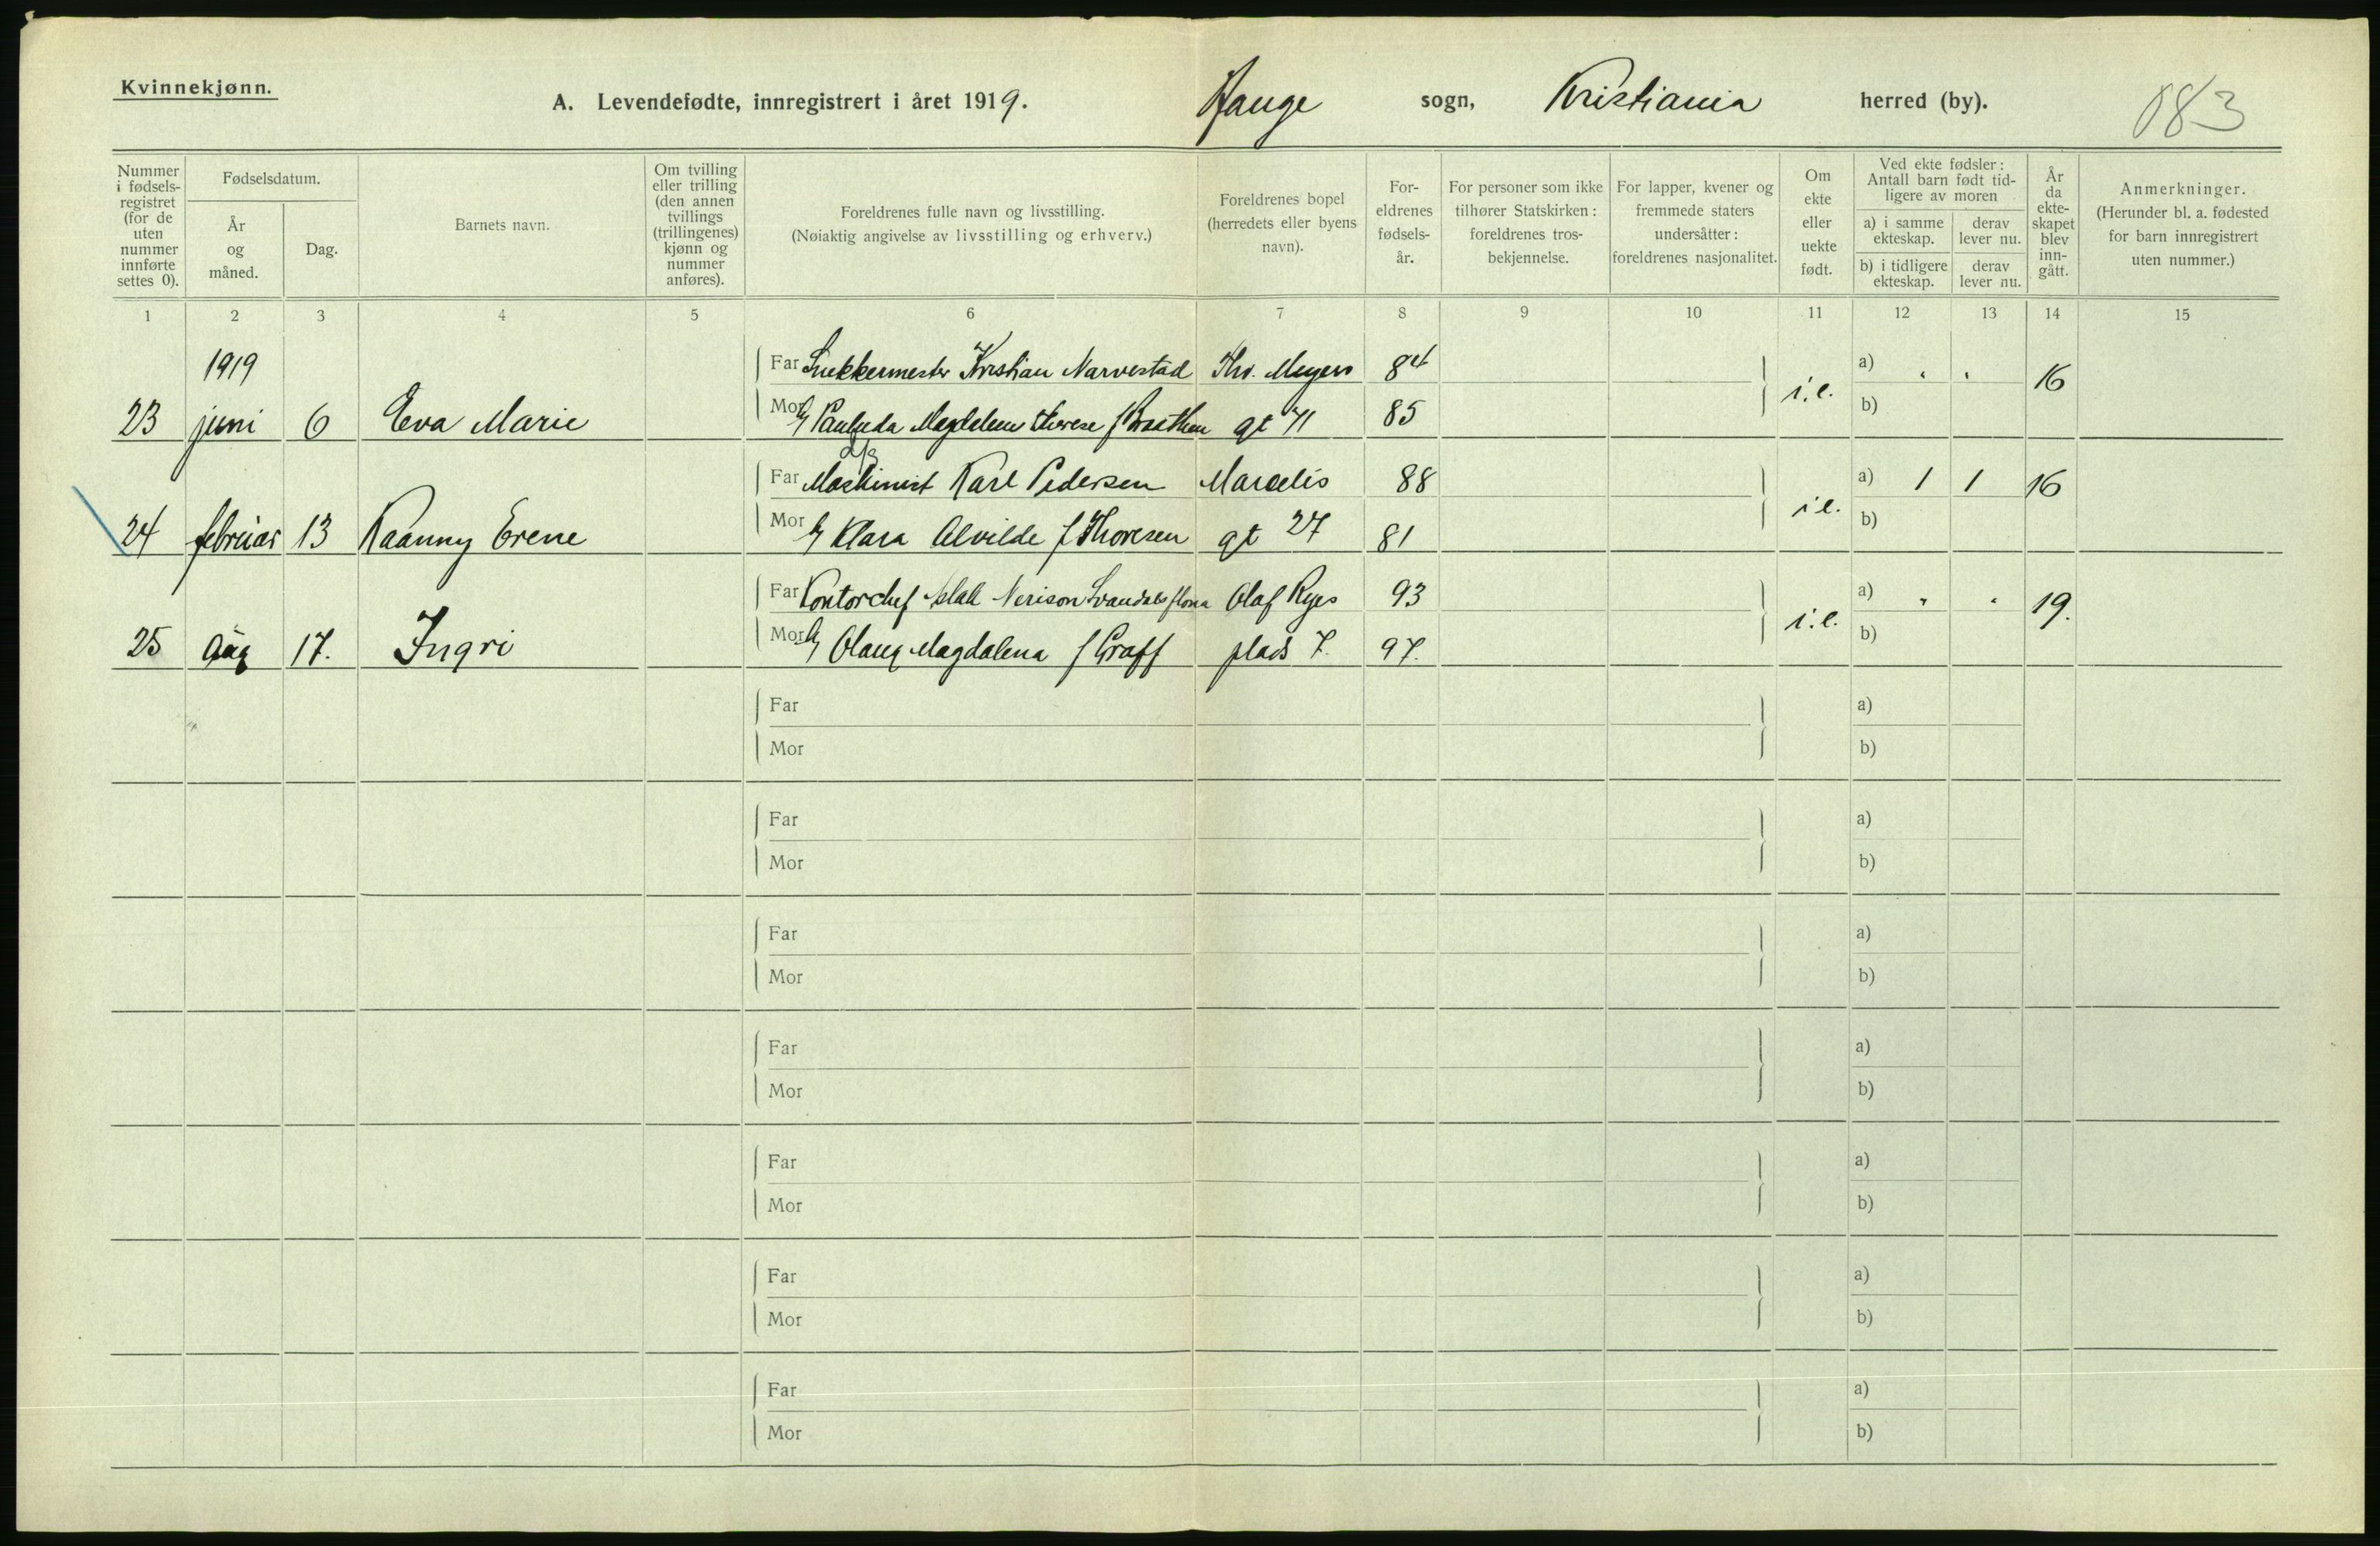 Kvinnekjønn.
A. Levendefødte, innregistrert i året 1919. Hauge sogn, Kristiania herred (by). 083
Nummer i fødsels-registret (for de uten nummer innførte settes 0).
Fødselsdatum.
År og måned.
Dag.
Barnets navn.
Om tvilling eller trilling (den annen tvillings (trillingenes) kjønn og nummer anføres).
Foreldrenes fulle navn og livsstilling.
(Nøiaktig angivelse av livsstilling og erhverv.)
Foreldrenes bopel (herredets eller byens navn).
For-eldrenes fødsels-år.
For personer som ikke tilhører Statskirken: foreldrenes tros-bekjennelse.
For lapper, kvener og fremmede staters undersåtter: foreldrenes nasjonalitet.
Om ekte eller uekte født.
Ved ekte fødsler: Antall barn født tid-ligere av moren
a) i samme ekteskap.
derav lever nu.
b) i tidligere ekteskap.
derav lever nu.
År da ekte-skapet blev inn-gått.
Anmerkninger.
(Herunder bl. a. fødested for barn innregistrert uten nummer.)
1 2 3 4 5 6 7 8 9 10 11 12 13 14 15
1919 Far Snekkermester Kristian Narvestad Thv. Meyers 84 a) " "
23 juni 6 Eva Marie Mor Magdalene Therese f Braathen gt 71 85 i.e. b) 16
Far Maskinist Karl Pedersen Marcelis 88 a) 1 1 16
24 februar 13 Raanny Erene Mor Klara Alvilde f Thoresen gt 27 81 i e. b)
Far Kontorchef Aslak Nerison Olaf Ryes 93 a) " " 19.
25 Aug 17. Ingri Mor Olaug Magdalena f Graff plads 7. 97. i.e. b)
Far a)
Mor b)
Far a)
Mor b)
Far a)
Mor b)
Far a)
Mor b)
Far a)
Mor b)
Far a)
Mor b)
Far a)
Mor b)